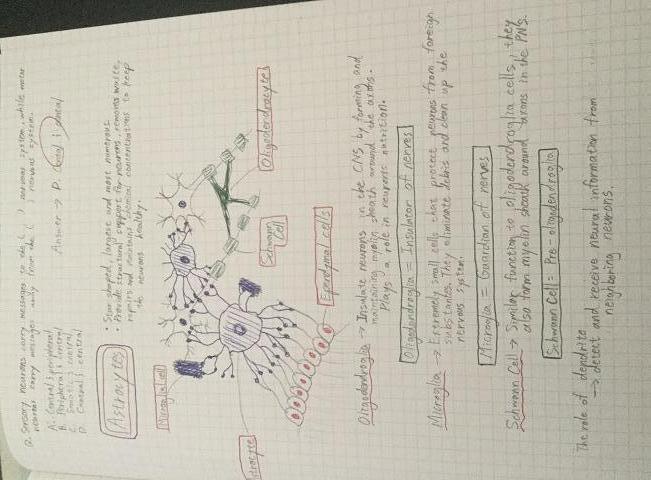 Q. Sensory neurons carry messages to the ( ) nervous system, while motor
neurons carry messages away from the ( ) nervous system.
A. Central; peripheral
B. Peripheral; central
C.
D. Central; central
Answer → D. Central; central
Astrocytes
• Star shaped, largest and most numerous
• Provide structural support for neurons, removes waste,
repairs and maintains chemical concentrations to keep
the neurons healthy.
Microglial cell
Schwann
Cell
Oligodendrocytes
Ependymal cells
Oligodendroglia → Insulate neurons in the CNS by forming and
maintaining myelin sheath around the axons.
Plays a role in neurons nutrition.
Oligodendroglia = Insulator of nerves
Microglia → Extremely small cells that protect neurons from foreign
substances. They eliminate debris and clean up the
nervous system
Microglia = Guardian of nerves
Schwann Cell → Similar function to oligodendroglia cells, they
also form myelin sheath around axons in the PNS.
Schwann Cell = Pro-oligodendroglia
The role of dendrite
→ detect and receive neural information from
neighboring neurons.